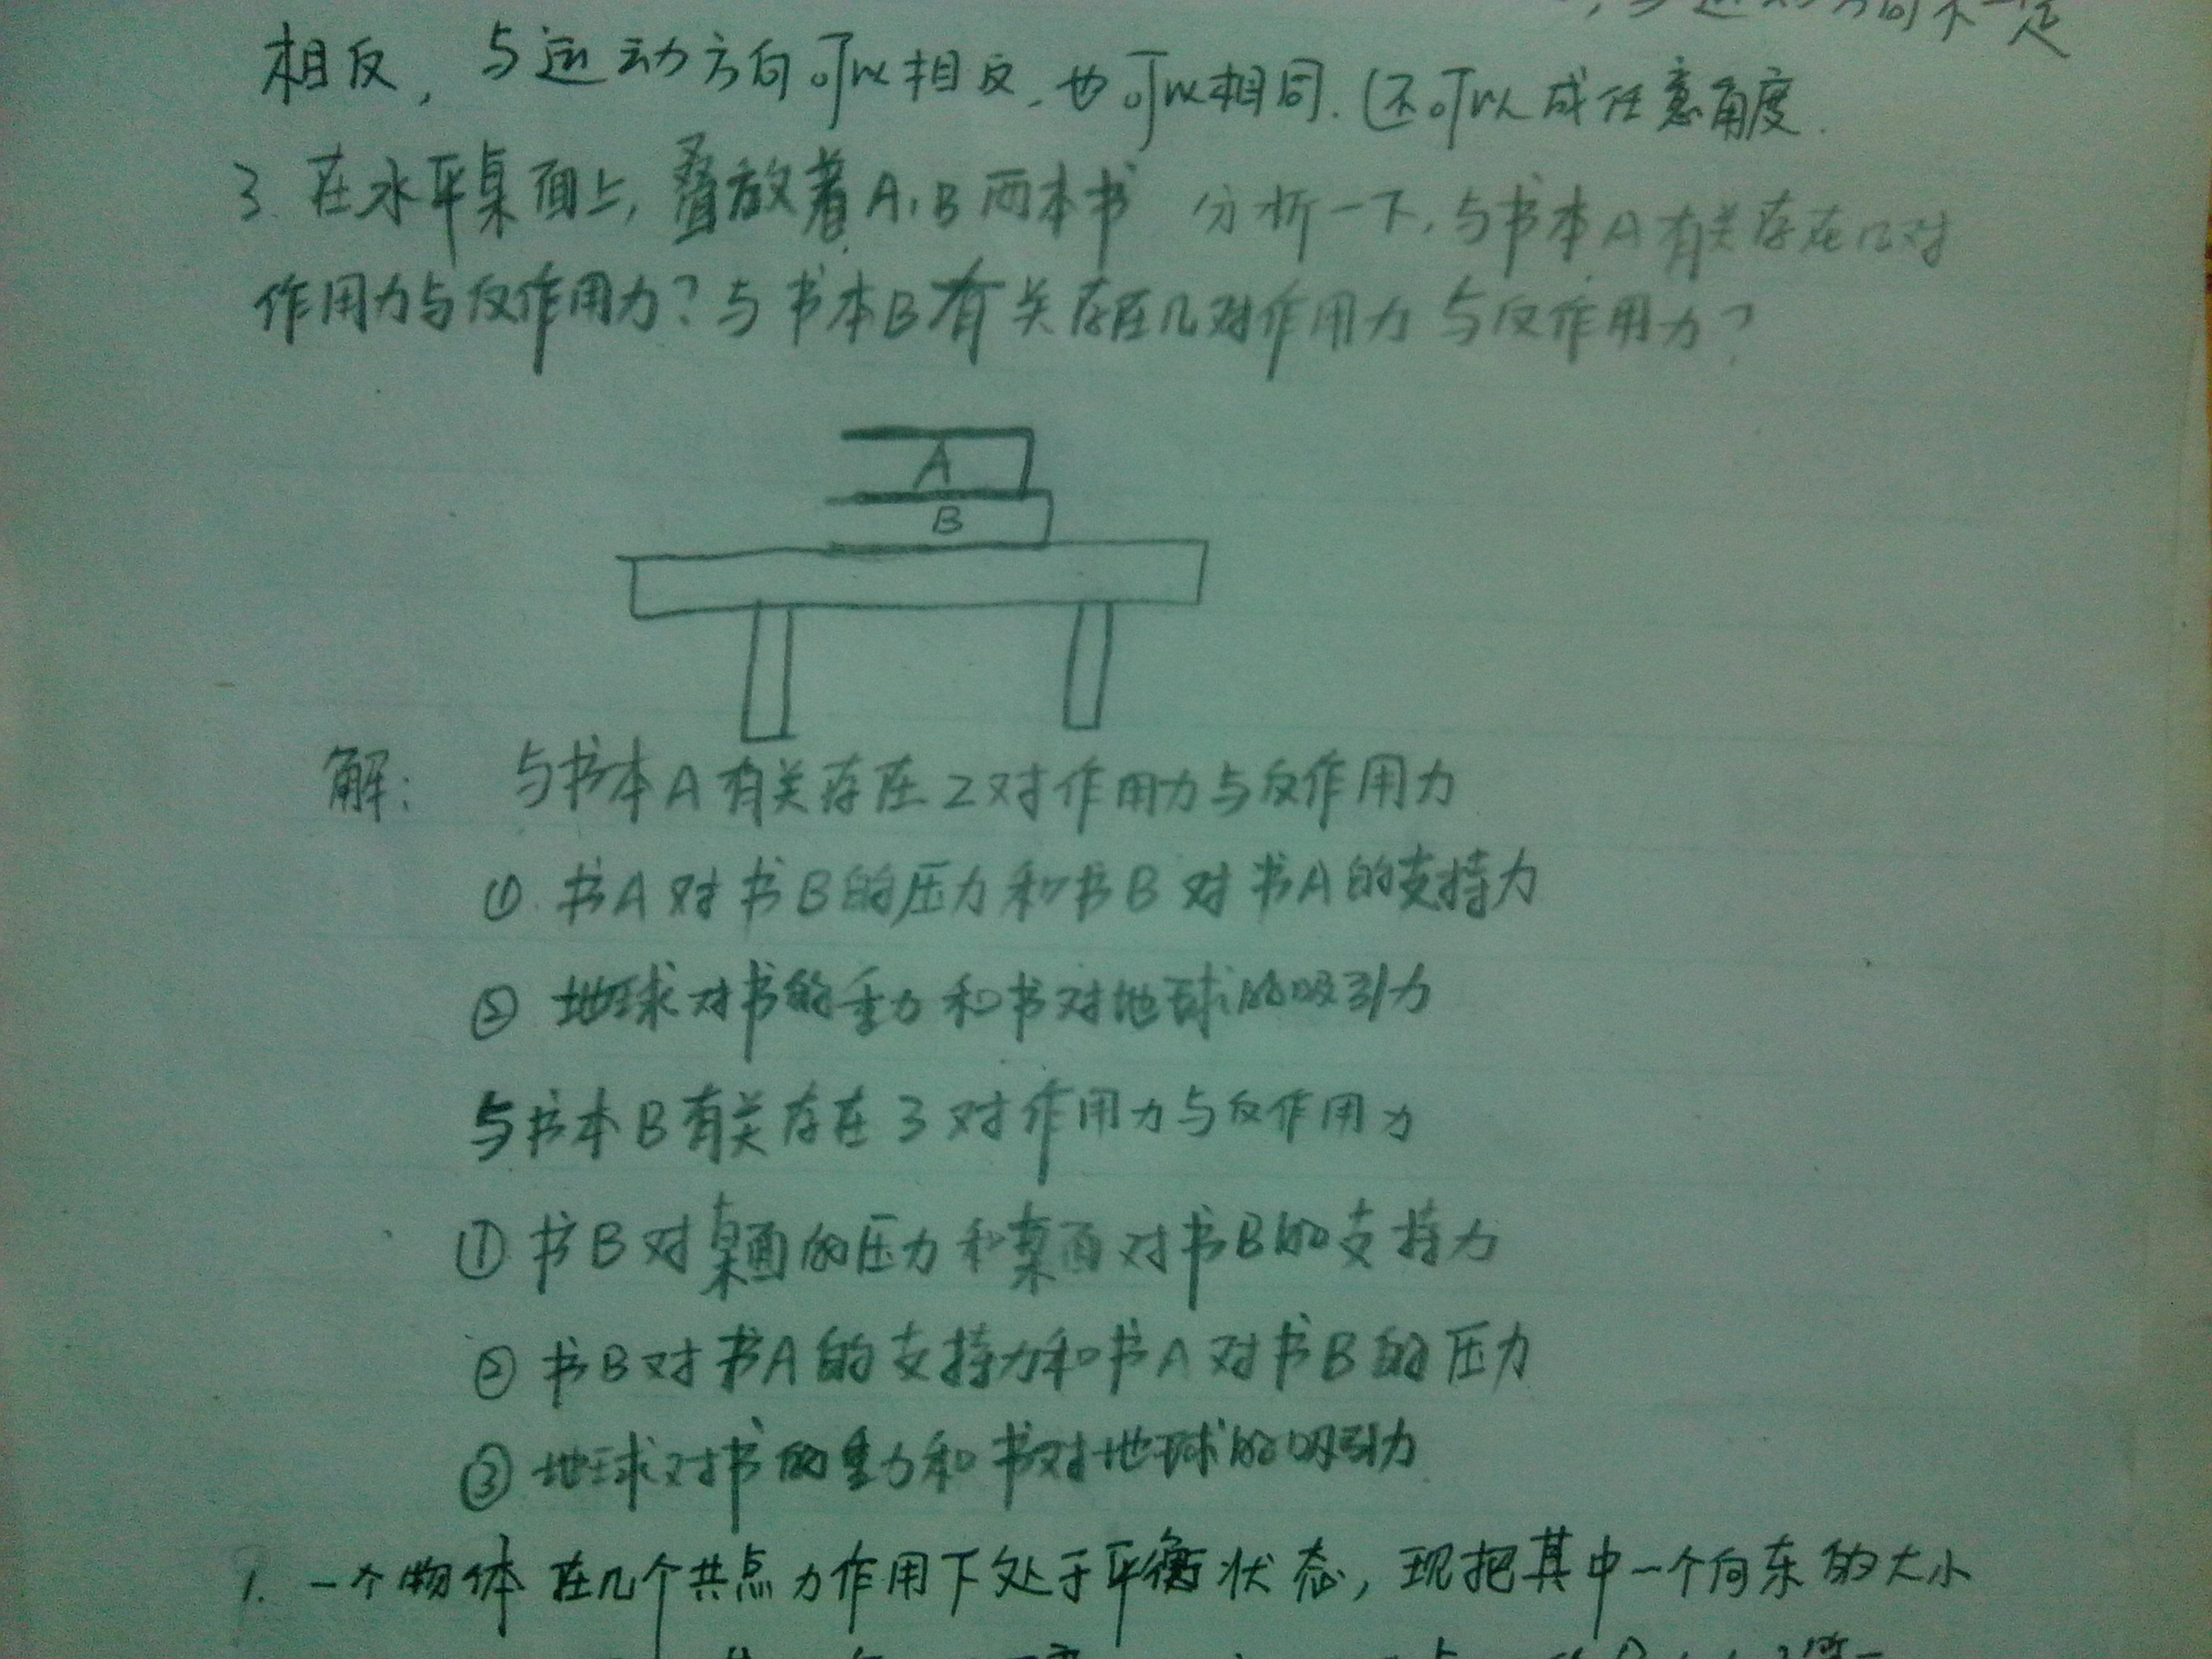 不一定
相反，与运动方向可以相反，也可以相同.(还可以成任意角度.
3. 在水平桌面上,叠放着A、B两本书 分析一下,与书本A有关存在几对
作用力与反作用力?与书本B有关存在几对作用力与反作用力?
A
B
解: 与书本A有关存在2对作用力与反作用力
①.书A对书B的压力和书B对书A的支持力
② 地球对书的重力和书对地球的吸引力
与书本B有关存在3对作用力与反作用力
① 书B对桌面的压力和桌面对书B的支持力
② 书B对书A的支持力和书A对书B的压力
③ 地球对书的重力和书对地球的吸引力
1. 一个物体在几个共点力作用下处于平衡状态,现把其中一个向东的大小